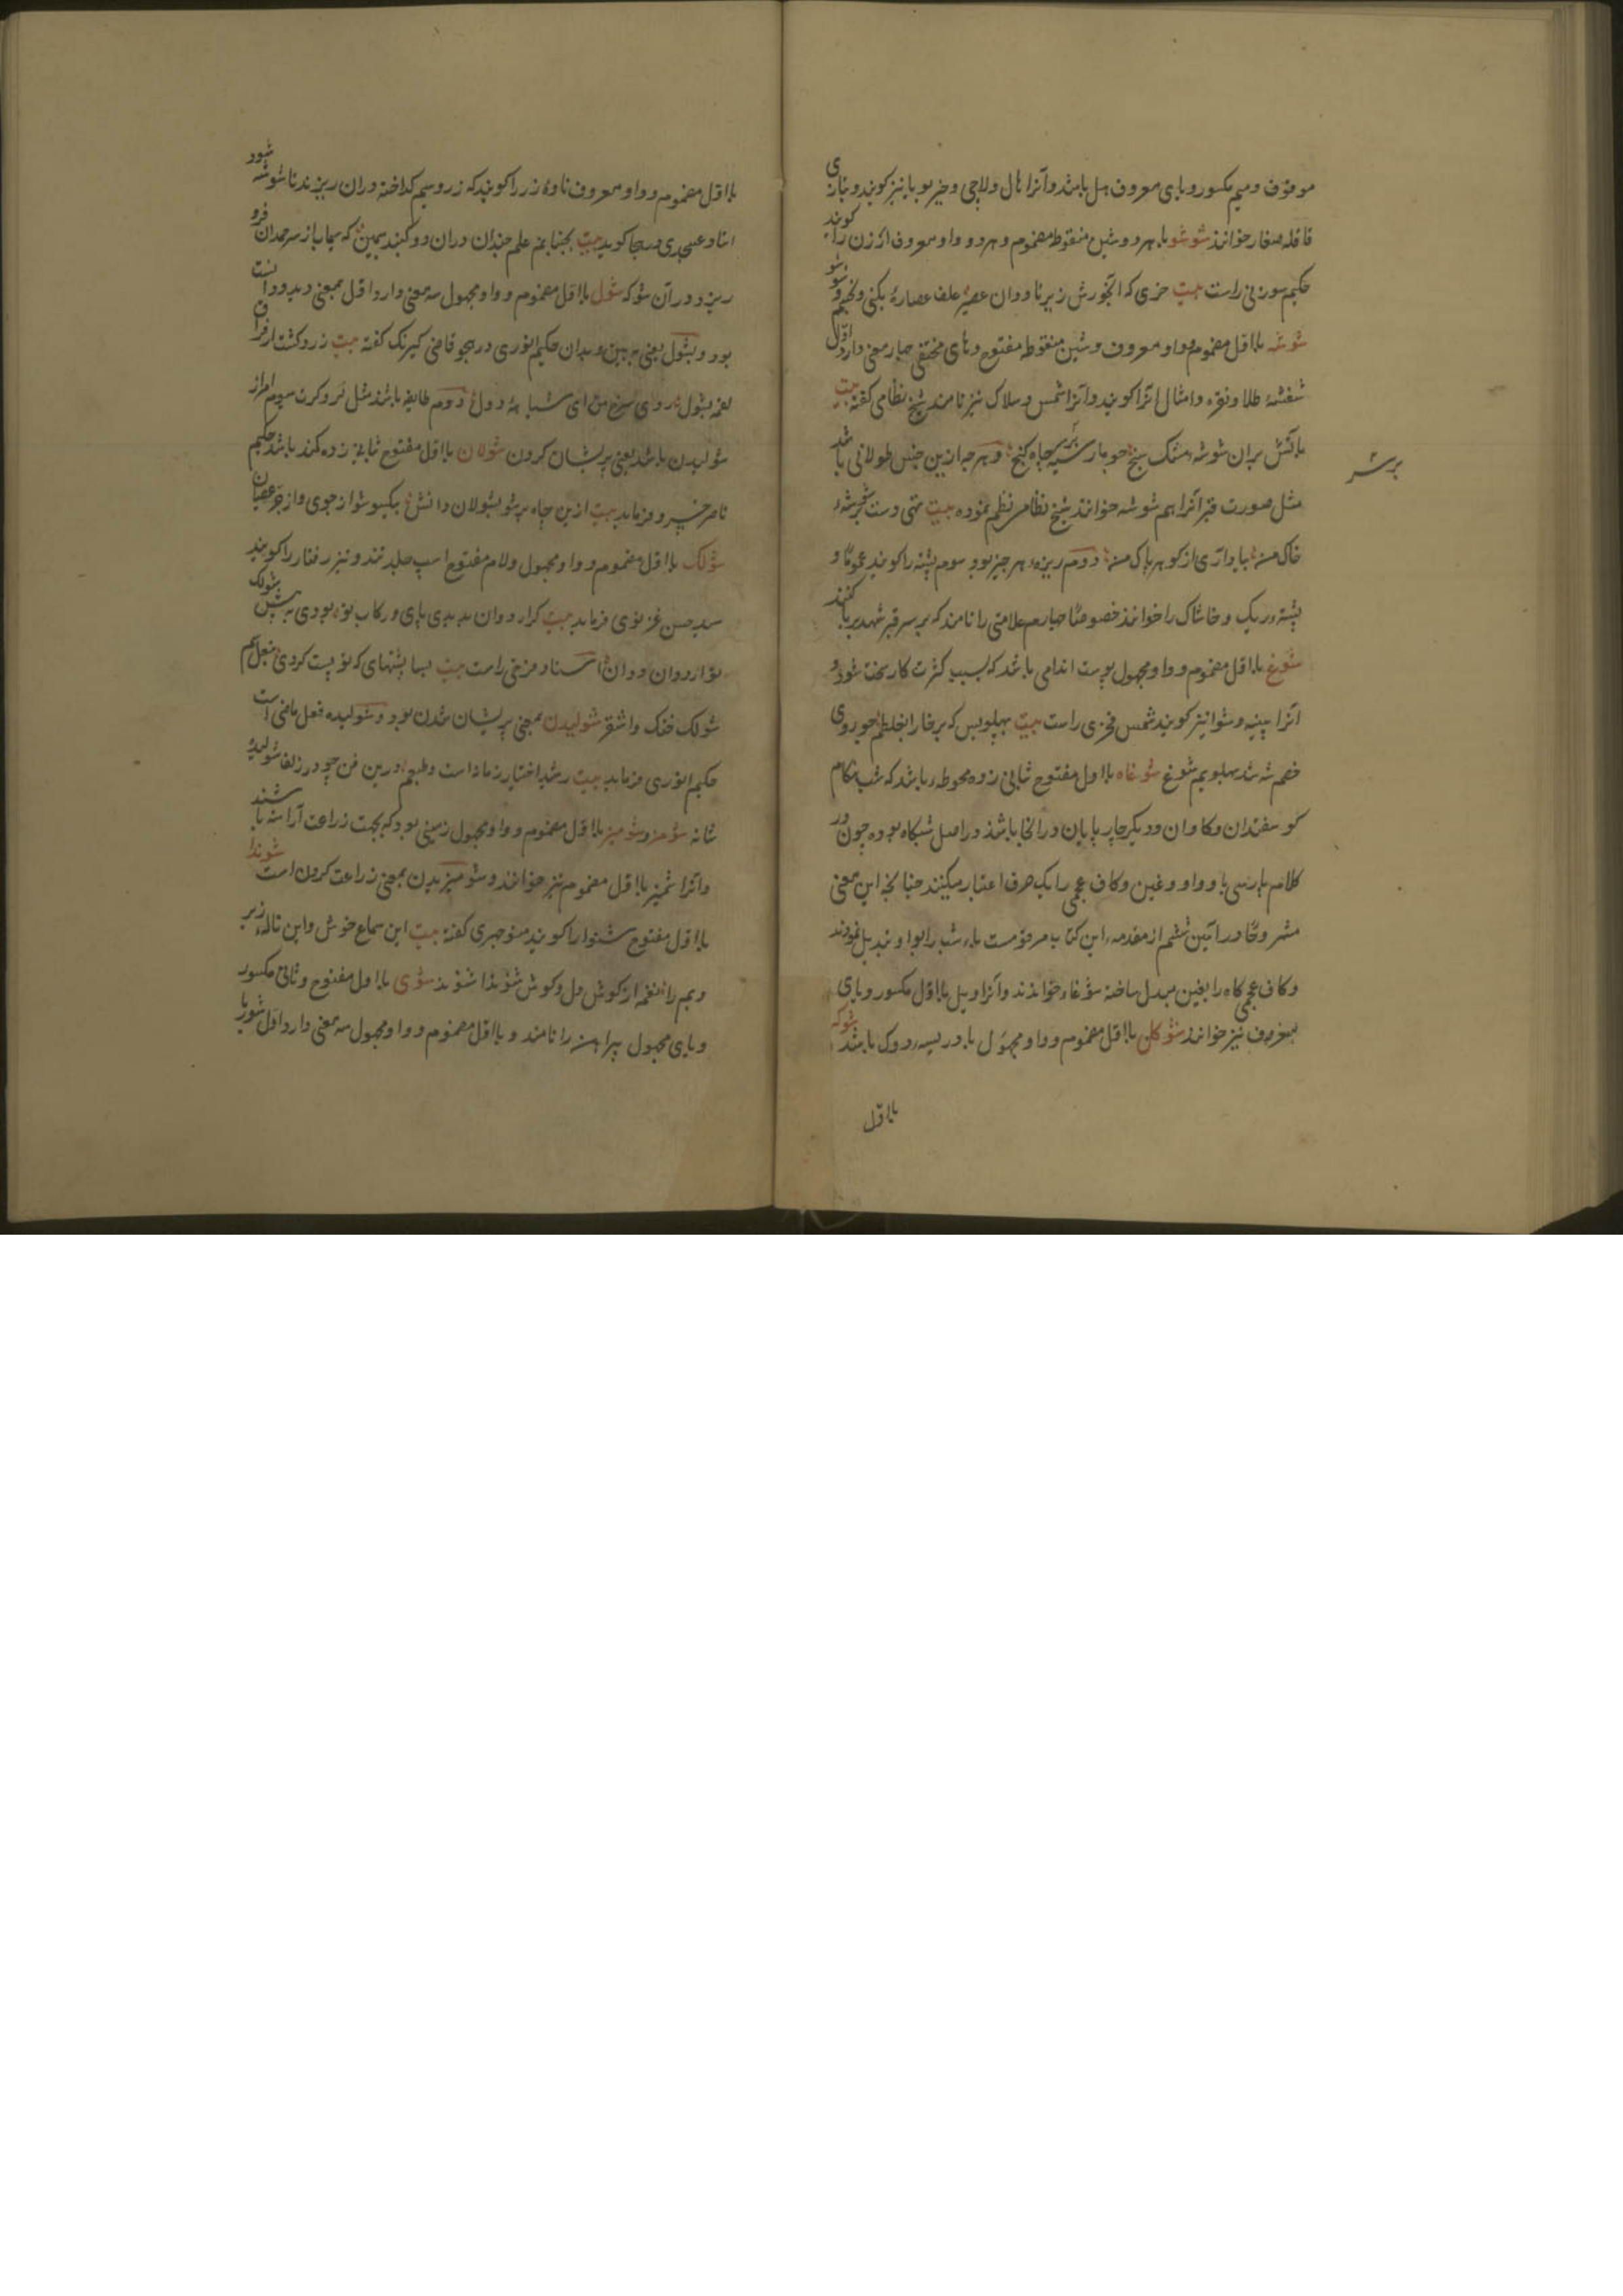 موقوف و میم مکسور و یای معروف هل باشد و آنرا هال و لاچی و خیر بویا نیز کویند و بتازی
قاقله صغار خوانند شوشو با هر دو شین منقوطه مضموم و هر دو واو معروف ارزن را کویند
حکیم سوزنی راست بیت خری که آبخورش زیر ناودان عصیر علف عصاره بکنی و نخیم و شوشو
شوشه با اول مضموم و واو معروف و شین منقوطه مفتوح و های مختفی چهار معنی دارد اول
شفشه طلا و نقره و امثال آنرا کویند و آنرا شمس و سلاک نیز نامند شیخ نظامی کفته بیت
بآتش بران شوشه مشک سنج چو مار سیه بر سر چاه کنج و هر چه ازین جنس طولانی باشد
مثل صورت قبر آنرا هم شوشه خوانند شیخ نظامی نظم نموده بیت تهی دست بر شوشه
خاک من بیاد آری از کوهر پاک من دوم ریزه هر چیز بود سوم پشته را کویند عموما و
پشته ریک و خاشاک را خوانند خصوصا چهارم علامتی را نامند که بر سر قبر شهید برپا کنند
شوغ با اول مضموم و واو مجهول پوست اندامی باشد که بسبب کثرت کار سخت شود و
آنرا پینه و شوا نیز کویند شمس فخری راست بیت پهلو بس که بر خارا بخلطم چو روی
خصم شه شد پهلویم شوغ شوغاه با اول مفتوح ثانی زده محوطه باشد که شب هنکام
کوسفندان و کاوان و دیکر چارپایان در آنجا باشند در اصل شبکاه بوده چون در
کلام پارسی با و واو و غین و کاف عجمی را یک حرف اعتبار میکنند چنانچه این معنی
مشروحا در آئین ششم از مقدمه این کتاب مرقومست باء شب را بواو تبدیل نمودند
و کاف عجمی کاه را بغین مبدل ساخته شوغاه خوانند و آنرا ویل با اول مکسور و یای
معروف نیز خوانند شوکان با اول مضموم و واو مجهول بادریسه دوک باشد شوکه
بااول
برسر
با اول مضموم و واو معروف ناوه زر را کویند که زر و سیم کداخته دران ریزند تا شوشه شود
استاد عسجدی در هجا کوید بیت بجنبانم علم چندان دران دو کنبد سیمین که سیماب از سر حمدان فرو
ریزد در آن شوکه شول با اول مضموم و واو مجهول سه معنی دارد اول بمعنی دید و دانست
بود و بشول یعنی به بین و بدان حکیم انوری در هجو قاضی کیرنک کفته بیت زرد کشت از فراق
لقمه بشول روی سرخ من ای سیاه دول دوم طایفه باشند مثل لر و کرد سوم امر از
شولیدن باشد یعنی پریشان کردن شولان با اول مفتوح ثانی زده کمند باشد حکیم
ناصر خسرو فرماید بیت ازین چاه برشو بشولان دانش بیکسو شو از جوی و از جر عصیان
شولک با اول مضموم و واو مجهول و لام مفتوح اسپ جلد تند و تیز رفتار را کویند
سید حسن غزنوی فرماید بیت کرار دوان بدیدی پای و رکاب تو بودی به پیش شولک
تو اردوان دوان استاد فرخی راست بیت بسا پشتهای که تو پست کردی بنعل سم
شولک خنک و اشقر شولیدن بمعنی پریشان شدن بود و شولیده فعل ماضی است
حکیم انوری فرماید بیت رشد اختیار زمانه است و طبعم درین فن چو در زلف شولیده
شانه شومز و شومیز با اول مضموم و واو مجهول زمینی بود که بجهت زراعت آراسته باشند
و آنرا شمیز با اول مضموم نیز خوانند و شومیزیدن بمعنی زراعت کردن است شوندا
با اول مفتوح شنوا را کویند منوچهری کفته بیت این سماع خوش و این ناله زیر
و بم را نغمه از کوش دل و کوش شوندا شنوند شوی با اول مفتوح و ثانی مکسور
و یای مجهول پیراهن را نامند و با اول مضموم و واو مجهول سه معنی دارد اول شوربا